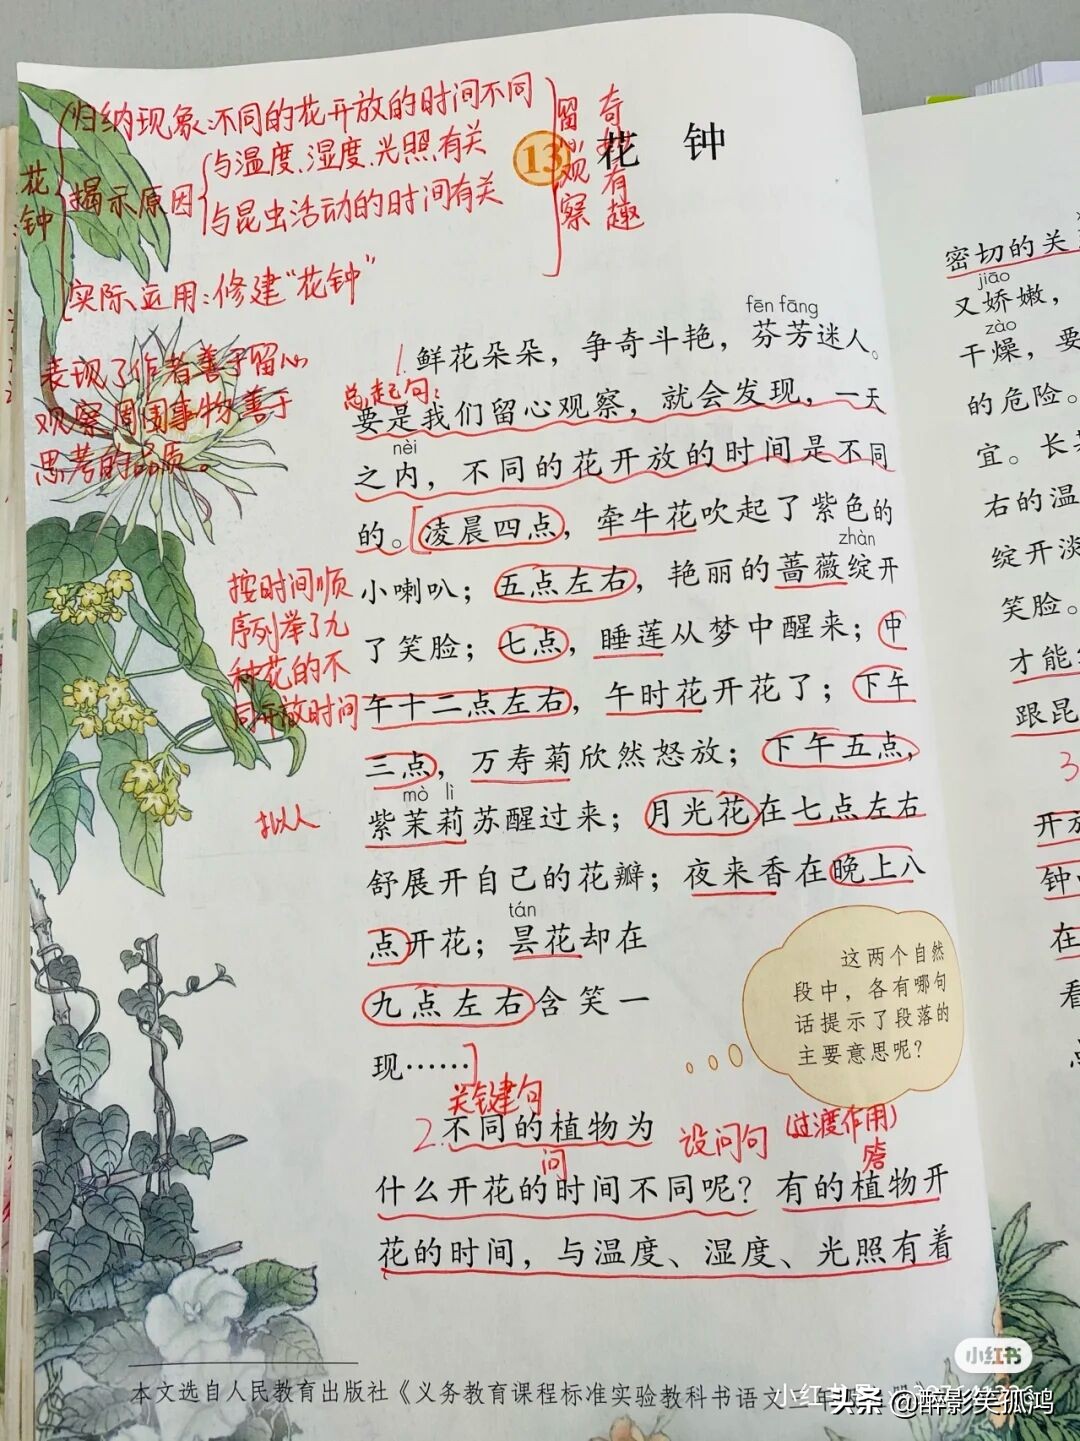 归纳现象:不同的花开放的时间不同
花钟
揭示原因
与温度、湿度、光照有关
与昆虫活动的时间有关
实际运用:修建“花钟”
留心观察
奇
有趣
13 花 钟
表现了作者善于留心
观察周围事物,善于
思考的品质。
fēn fāng
1.鲜花朵朵，争奇斗艳，芬芳迷人。
总起句:
要是我们留心观察，就会发现，一天
nèi
之内，不同的花开放的时间是不同
的。凌晨四点，牵牛花吹起了紫色的
zhàn
小喇叭；五点左右，艳丽的蔷薇绽开
了笑脸；七点，睡莲从梦中醒来；中
午十二点左右，午时花开花了；下午
三点，万寿菊欣然怒放；下午五点，
mò lì
紫茉莉苏醒过来；月光花在七点左右
舒展开自己的花瓣；夜来香在晚上八
tán
点开花；昙花却在
九点左右含笑一
现……
按时间顺
序列举了九
种花的不
同开放时间
拟人
这两个自然
段中，各有哪句
话提示了段落的
主要意思呢？
关键句
2.不同的植物为
设问句
(过渡作用)
问
答
什么开花的时间不同呢？有的植物开
花的时间，与温度、湿度、光照有着
本文选自人民教育出版社《义务教育课程标准实验教科书语文
密切的关
jiāo
又娇嫩，
zào
干燥，要
的危险。
宜。长
右的温
绽开淡
笑脸。
才能
跟昆
3
开放
钟
在
看
小红书
头条 @醉影笑孤鸿